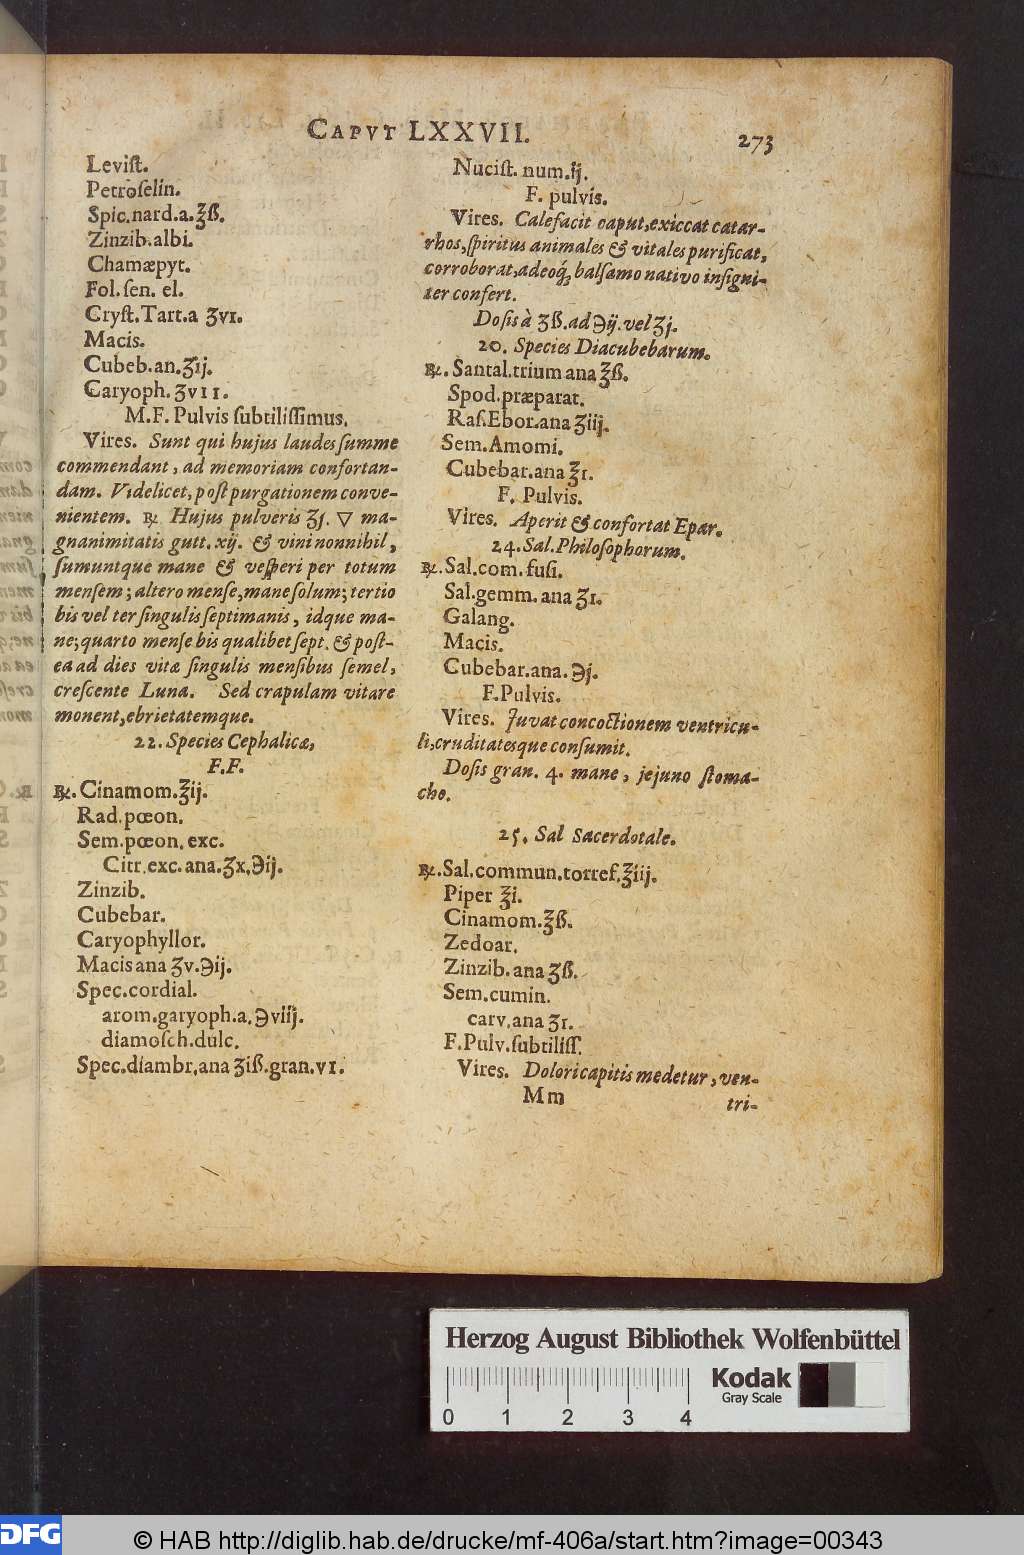 CAPVT LXXVII.
273
Levist.
Petroselin.
Spic.nard.a.℥ß.
Zinzib.albi.
Chamæpyt.
Fol.sen. el.
Cryst.Tart.a ʒvı.
Macis.
Cubeb.an.ʒij.
Caryoph.ʒvıı.
M.F. Pulvis subtilissimus.
Vires. Sunt qui hujus laudes summe
commendant, ad memoriam confortan-
dam. Videlicet, post purgationem conve-
nientem. ℞ Hujus pulveris ʒj. ▽ ma-
gnanimitatis gutt. xij. & vini nonnihil,
sumuntque mane & vesperi per totum
mensem; altero mense, mane solum; tertio
bis vel ter singulis septimanis, idque ma-
ne; quarto mense bis qualibet sept. & post-
ea ad dies vitæ singulis mensibus semel,
crescente Luna. Sed crapulam vitare
monent, ebrietatemque.
22. Species Cephalicæ,
F.F.
℞. Cinamom.℥ij.
Rad.pœon.
Sem.pœon. exc.
Citr.exc.ana.ʒx.℈ij.
Zinzib.
Cubebar.
Caryophyllor.
Macis ana ʒv.℈ij.
Spec.cordial.
arom.garyoph.a.℈viij.
diamosch.dulc.
Spec.diambr.ana ʒiß.gran.vı.
Nucist. num.ij.
F. pulvis.
Vires. Calefacit caput, exiccat catar-
rhos, spiritus animales & vitales purificat,
corroborat, adeoq́; balsamo nativo insigni-
ter confert.
Dosis à ʒß. ad ℈ij. vel ʒj.
20. Species Diacubebarum.
℞. Santal.trium ana ℥ß.
Spod.præparat.
Ras.Ebor.ana ʒiij.
Sem.Amomi.
Cubebar.ana ʒı.
F. Pulvis.
Vires. Aperit & confortat Epar.
24. Sal.Philosophorum.
℞.Sal.com.fusi.
Sal.gemm. ana ʒı.
Galang.
Macis.
Cubebar.ana.℈j.
F.Pulvis.
Vires. Juvat concoctionem ventricu-
li, cruditatesque consumit.
Dosis gran. 4. mane, jejuno stoma-
cho.
25. Sal Sacerdotale.
℞.Sal.commun.torref.℥iij.
Piper ℥i.
Cinamom.℥ß.
Zedoar.
Zinzib.ana ʒß.
Sem.cumin.
carv.ana ʒı.
F.Pulv.subtiliss.
Vires. Dolori capitis medetur, ven-
Mm
tri-
Herzog August Bibliothek Wolfenbüttel
Kodak
Gray Scale
0 1 2 3 4
DFG
© HAB http://diglib.hab.de/drucke/mf-406a/start.htm?image=00343